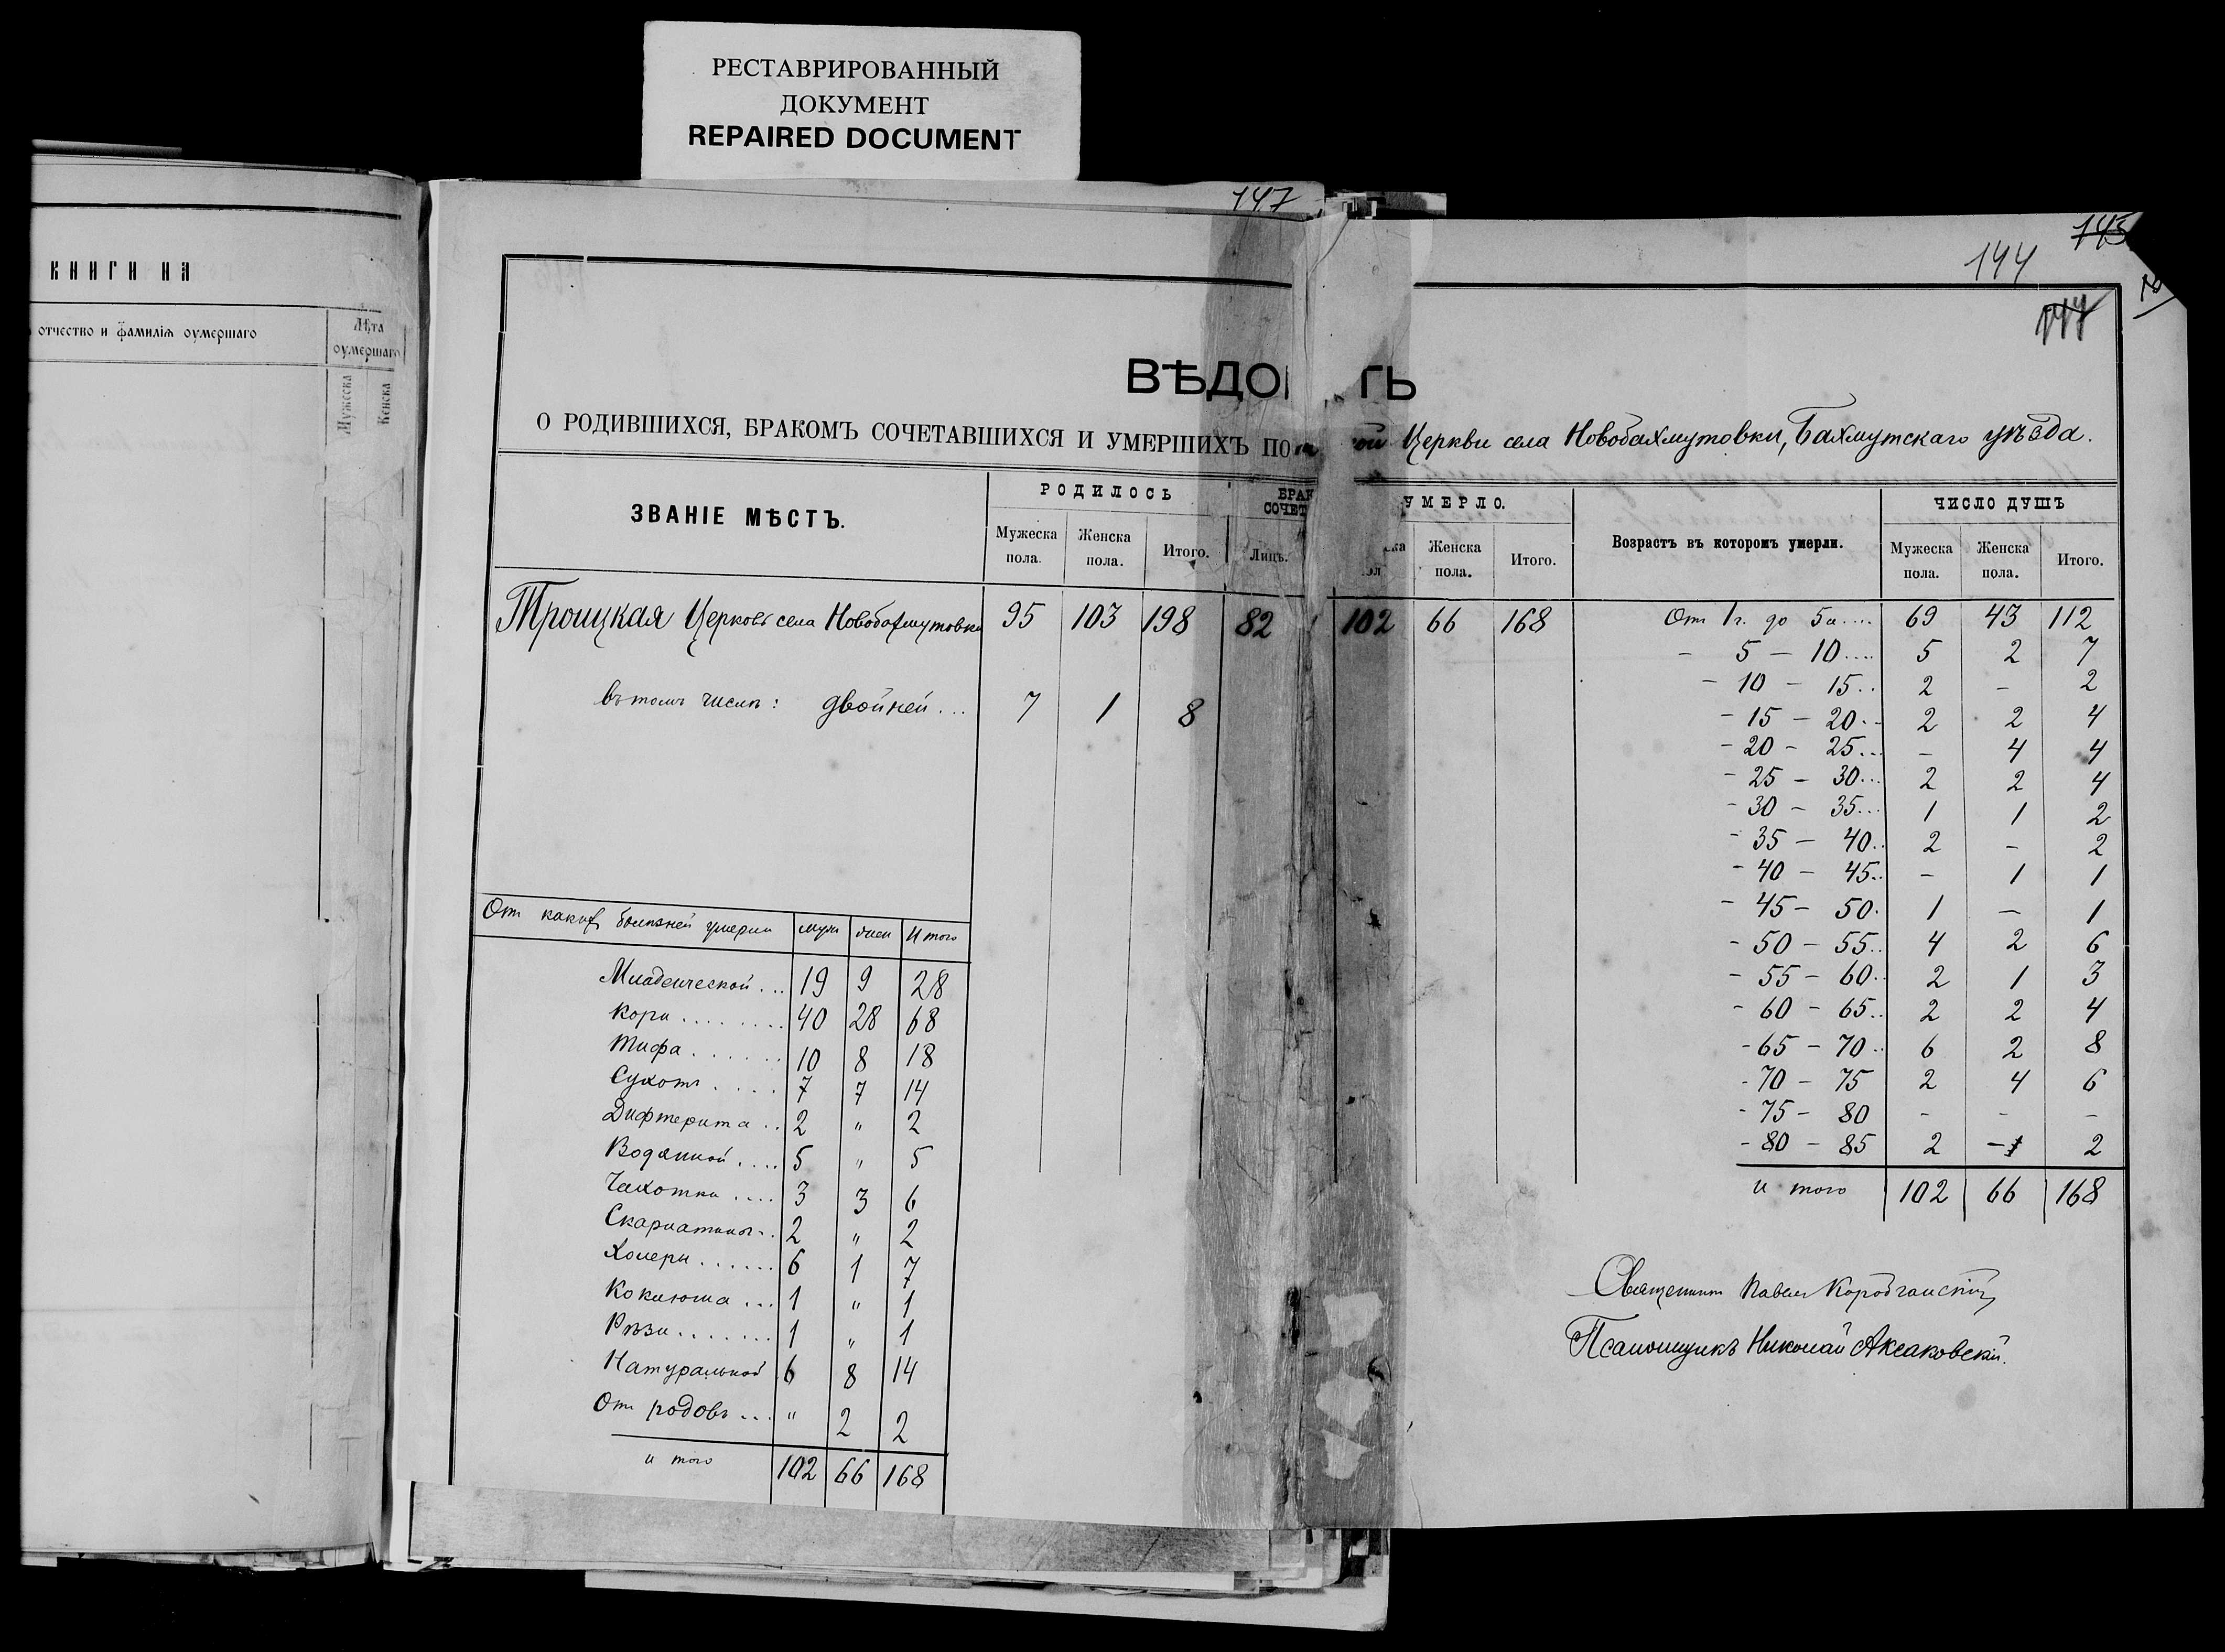 РЕСТАВРИРОВАННЫЙ
ДОКУМЕНТ
REPAIRED DOCUMENT
КНИГИ НА
отчество и фамилїѧ оумершаго
Лѣта
оумершаго
Мужеска
Женска
147
145
144
ВѢДО ТЬ
О РОДИВШИХСЯ, БРАКОМЪ СОЧЕТАВШИХСЯ И УМЕРШИХЪ ПО ой Церкви села Новобахмутовки, Бахмутскаго уѣзда.
ЗВАНІЕ МѢСТЪ.
РОДИЛОСЬ
Мужеска пола.
Женска пола.
Итого.
БРАК
СОЧЕТ
Лицъ.
УМЕРЛО.
Женска пола.
Итого.
Возрастъ въ которомъ умерли.
ЧИСЛО ДУШЪ
Мужеска пола.
Женска пола.
Итого.
Троицкая Церковь села Новобахмутовки 95 103 198 82 102 66 168
въ томъ числѣ: двойней... 7 1 8
От 1 г. до 5 и.... 69 43 112
- 5 - 10.... 5 2 7
- 10 - 15.. 2 - 2
- 15 - 20.. 2 2 4
- 20 - 25... - 4 4
- 25 - 30... 2 2 4
- 30 - 35... 1 1 2
- 35 - 40.. 2 - 2
- 40 - 45.. - 1 1
- 45 - 50. 1 - 1
- 50 - 55.. 4 2 6
- 55 - 60.. 2 1 3
- 60 - 65.. 2 2 4
- 65 - 70.. 6 2 8
- 70 - 75 2 4 6
- 75 - 80 - - -
- 80 - 85 2 - 2
и того 102 66 168
От каких болѣзней умерли муж жен Итого
Младенческой... 19 9 28
Кори........ 40 28 68
Тифа...... 10 8 18
Сухот.... 7 7 14
Дифтерита.. 2 " 2
Водянкой.... 5 " 5
Чахотки.... 3 3 6
Скарлатины.. 2 " 2
Холеры...... 6 1 7
Коклюша... 1 " 1
Рѣзи....... 1 " 1
Натуральной 6 8 14
От родовъ... " 2 2
и того 102 66 168
Священник Павел
Псаломщикъ Николай Аксаковскій.